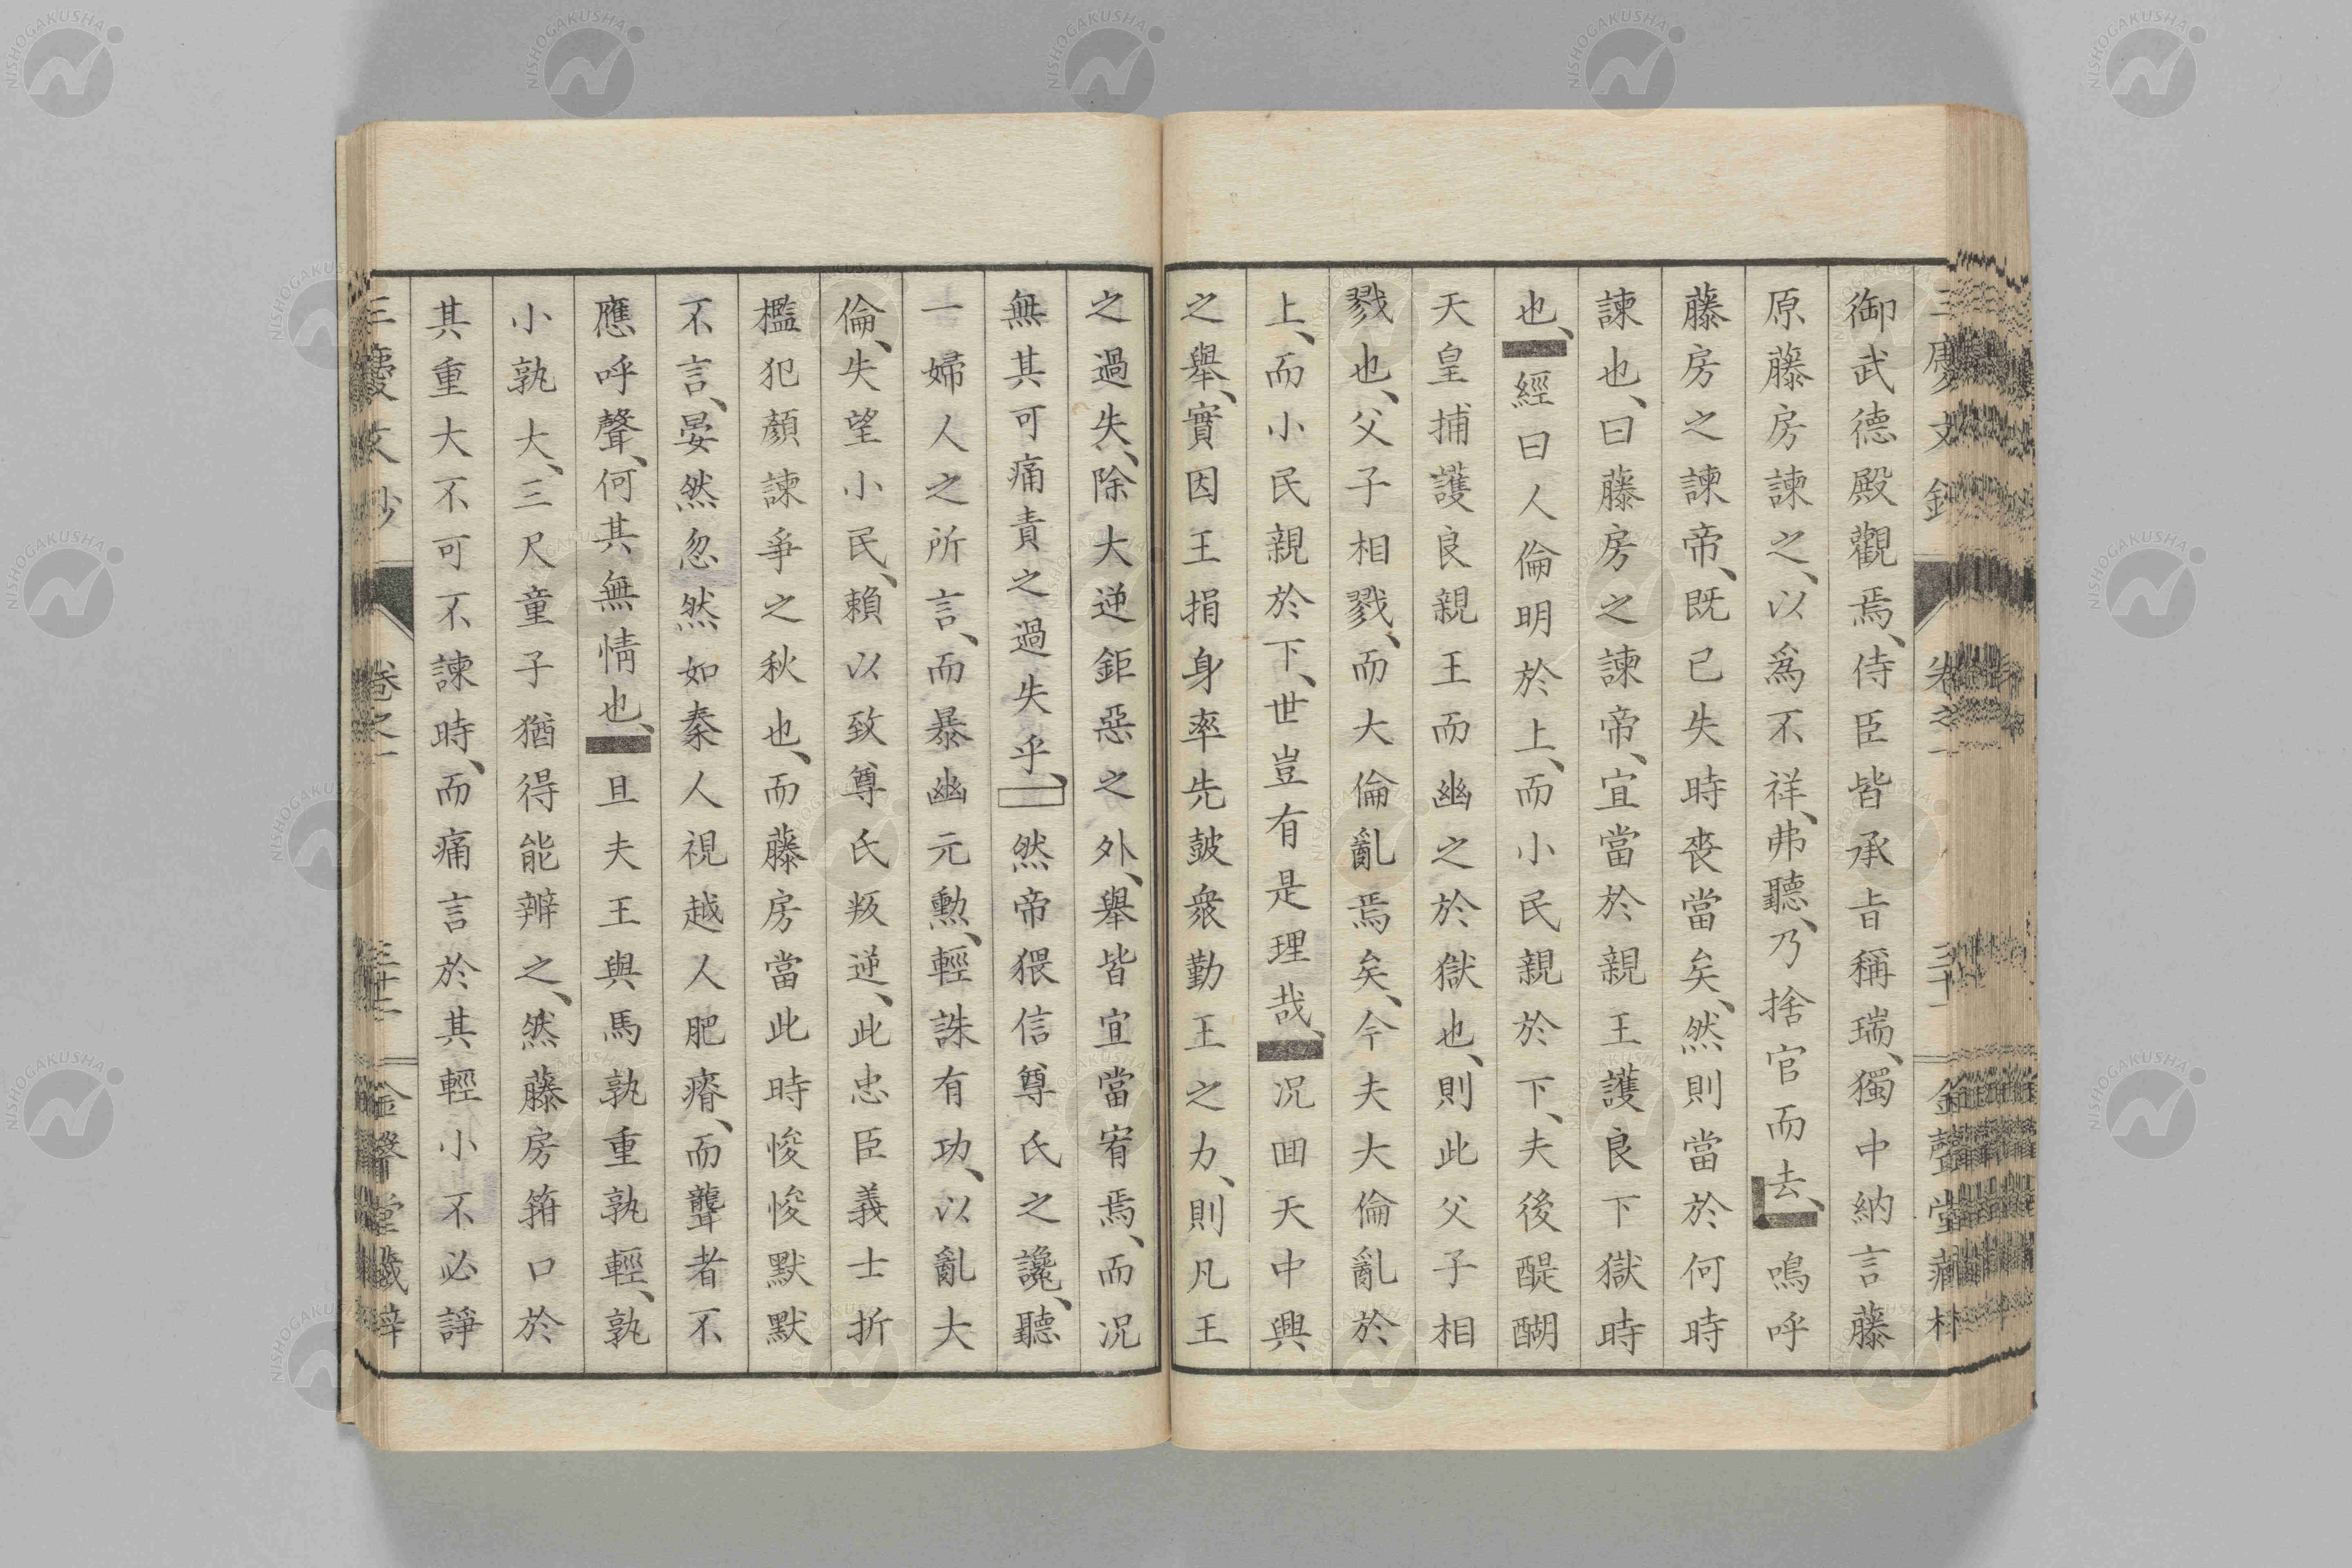 御武德殿觀焉、侍臣皆承旨稱瑞、獨中納言藤
原藤房諫之、以爲不祥、弗聽、乃捨官而去、嗚呼
藤房之諫帝、既已失時喪當矣、然則當於何時
諫也、曰藤房之諫帝、宜當於親王護良下獄時
也、經曰人倫明於上、而小民親於下、夫後醍醐
天皇捕護良親王而幽之於獄也、則此父子相
戮也、父子相戮、而大倫亂焉矣、今夫大倫亂於
上、而小民親於下、世豈有是理哉、况回天中興
之舉、實因王捐身率先鼓衆勤王之力、則凡王
之過失、除大逆鉅惡之外、舉皆宜當宥焉、而况
無其可痛責之過失乎、然帝猥信尊氏之讒、聽
一婦人之所言、而暴幽元勲、輕誅有功、以亂大
倫、失望小民、賴以致尊氏叛逆、此忠臣義士折
檻犯顏諫爭之秋也、而藤房當此時悛悛默默
不言、晏然忽然如秦人視越人肥瘠、而聾者不
應呼聲、何其無情也、且夫王與馬孰重孰輕、孰
小孰大、三尺童子猶得能辨之、然藤房箝口於
其重大不可不諫時、而痛言於其輕小不必諍
三慶文鈔 卷之一 金聲堂